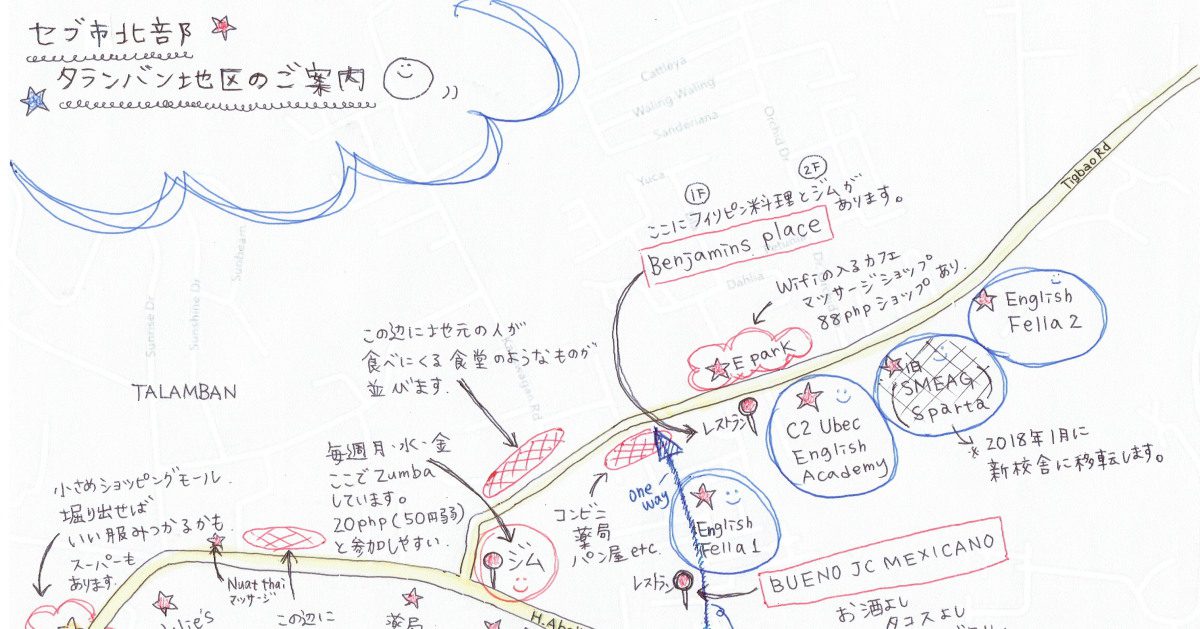 セブ市北部
タランバン地区のご案内
Cattleya
Waling Waling
Sanderiana
Orchid Dr
Yuca
Dahlia
Sunbeam
Sunshine Dr
Sunrise Dr
TALAMBAN
Tigbao Rd
1F
2F
ここにフィリピン料理とジムが
あります。
Benjamins place
Wifiの入るカフェ
マッサージショップ
88phpショップあり.
E park
English
Fella 2
旧
(SMEAG)
Sparta
※2018年1月に
新校舎に移転します。
C2 Ubec
English
Academy
レストラン
この辺に地元の人が
食べにくる食堂のようなものが
並びます.
毎週月・水・金
ここでZumba
しています。
20php(50円弱)
と参加しやすい.
ジム
コンビニ
薬局
パン屋 etc.
one
way
English
Fella 1
レストラン
BUENO JC MEXICANO
お酒よし
タコスよし
小さめショッピングモール.
堀り出せば
いい服みつかるかも.
スーパーも
あります.
Nuat thai
マッサージ
この辺に
薬局